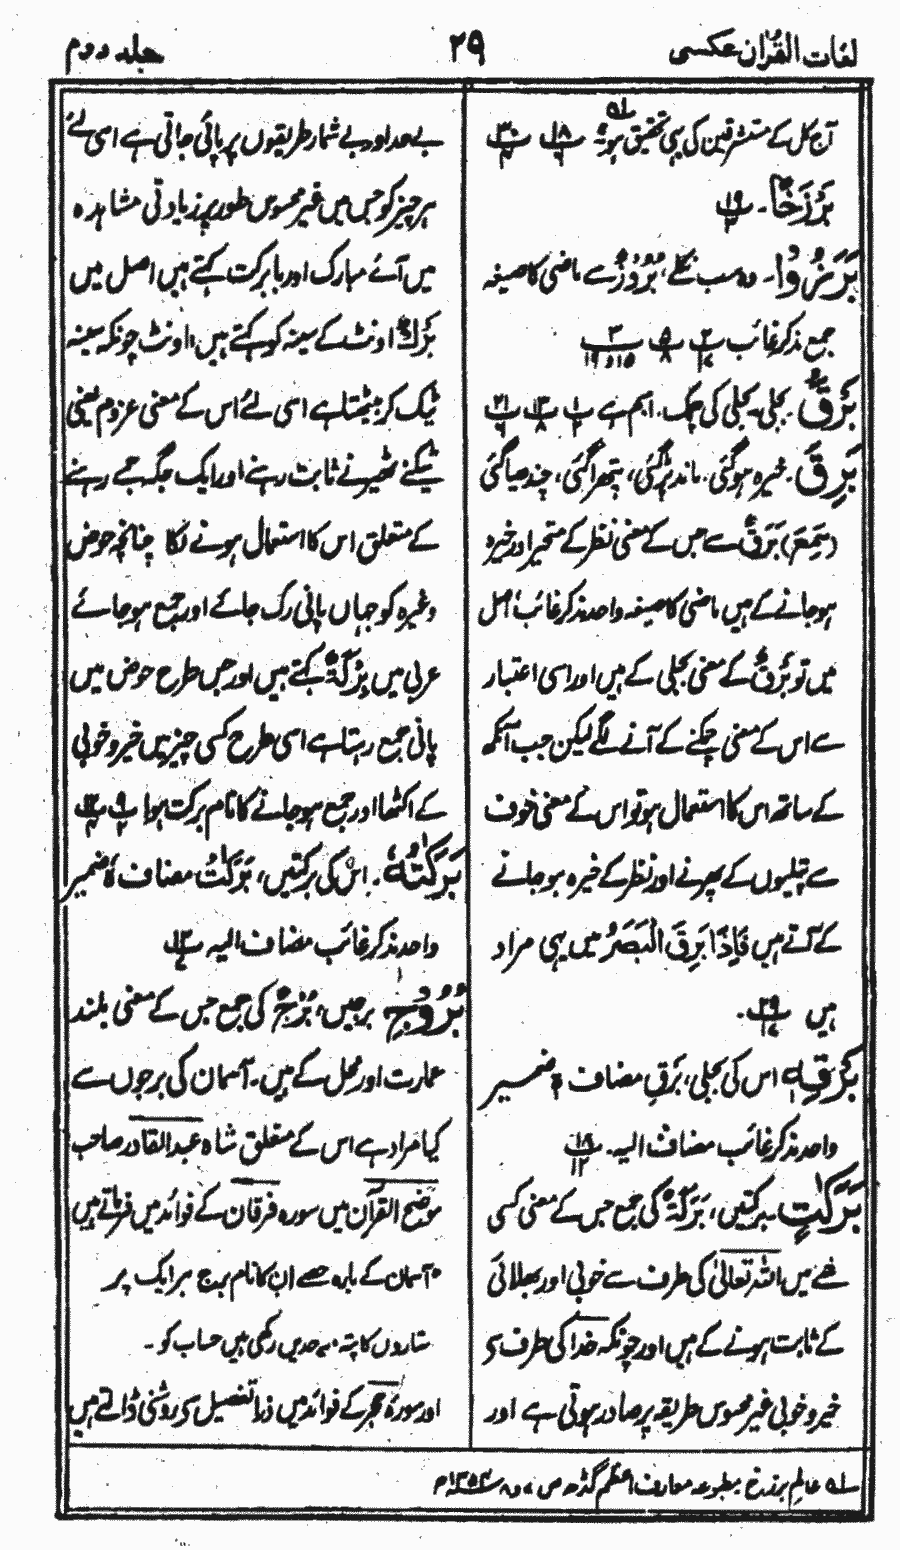 لغات القرآن عکسی
۲۹
جلد دوم
آج کل کے مستشرقین کی یہی تحقیق ہو؂
بَرْزَخًا۔
بَرَزُوْا۔ وہ سب نکلے، بُرُوْزٌ سے ماضی کا صیغہ
جمع مذکر غائب
بَرْقٌ بجلی۔ بجلی کی چمک۔ اسم ہے
بَرِقَ۔ خیرہ ہوگئی۔ ماند پڑگئی، پتھرا گئی، چندھیا گئی
(سَمِعَ) بَرَقٌ سے جس کے معنی نظر کے متحیر اور خیرہ
ہوجانے کے ہیں ماضی کا صیغہ واحد مذکر غائب، اصل
میں تو بَرْقٌ کے معنی بجلی کے ہیں اور اسی اعتبار
سے اس کے معنی چمکنے کے آنے لگے لیکن جب آنکھ
کے ساتھ اس کا استعمال ہو تو اس کے معنی خوف
سے پتلیوں کے پھرنے اور نظر کے خیرہ ہوجانے
کے آتے ہیں فَاِذَا بَرِقَ الْبَصَرُ میں یہی مراد
ہیں
بَرْقِهٖ اس کی بجلی، بَرْقِ مضاف ہٖ ضمیر
واحد مذکر غائب مضاف الیہ۔
بَرَكٰتٍ ۔ برکتیں، بَرَكَةٌ کی جمع جس کے معنی کسی
شے میں اللہ تعالیٰ کی طرف سے خوبی اور بھلائی
کے ثابت ہونے کے ہیں اور چونکہ خدا کی طرف سی
خیر و خوبی غیر محسوس طریقہ پر صادر ہوتی ہے اور
بے حد اور بے شمار طریقوں پر پائی جاتی ہے اسی لئے
ہر چیز کو جس میں غیر محسوس طور پر زیادتی مشاہدہ
میں آئے مبارک اور بابرکت کہتے ہیں اصل میں
بَرْكٌ اونٹ کے سینہ کو کہتے ہیں، اونٹ چونکہ سینہ
ٹیک کر بیٹھتا ہے اسی لئے اس کے معنی عزوم یعنی
ٹکنے ٹھہرنے ثابت رہنے اور ایک جگہ جمے رہنے
کے متعلق اس کا استعمال ہونے لگا چنانچہ حوض
وغیرہ کو جہاں پانی رک جائے اور جمع ہوجائے
عربی میں بِرْكَةٌ کہتے ہیں اور جس طرح حوض میں
پانی جمع رہتا ہے اسی طرح کسی چیز میں خیر و خوبی
کے اکٹھا اور جمع ہوجانے کا نام برکت ہوا
بَرَكٰتُهٗ۔ اس کی برکتیں، بَرَكٰتُ مضاف ہٗ ضمیر
واحد مذکر غائب مضاف الیہ
بُرُوْجٍ برجیں، بُرْجٌ کی جمع جس کے معنی بلند
عمارت اور محل کے ہیں۔ آسمان کی برجوں سے
کیا مراد ہے اس کے متعلق شاہ عبدالقادر صاحب
موضح القرآن میں سورہ فرقان کے فوائد میں فرماتے ہیں
آسمان کے بارہ حصے ان کا نام برج ہر ایک پر
ستاروں کا پتہ، یہ حدیں رکھی ہیں حساب کو ۔
اور سورۂ حجر کے فوائد میں ذرا تفصیل سی روشنی ڈالتے ہیں
؂ عالم برزخ مطبوعہ معارف اعظم گڈھ ص